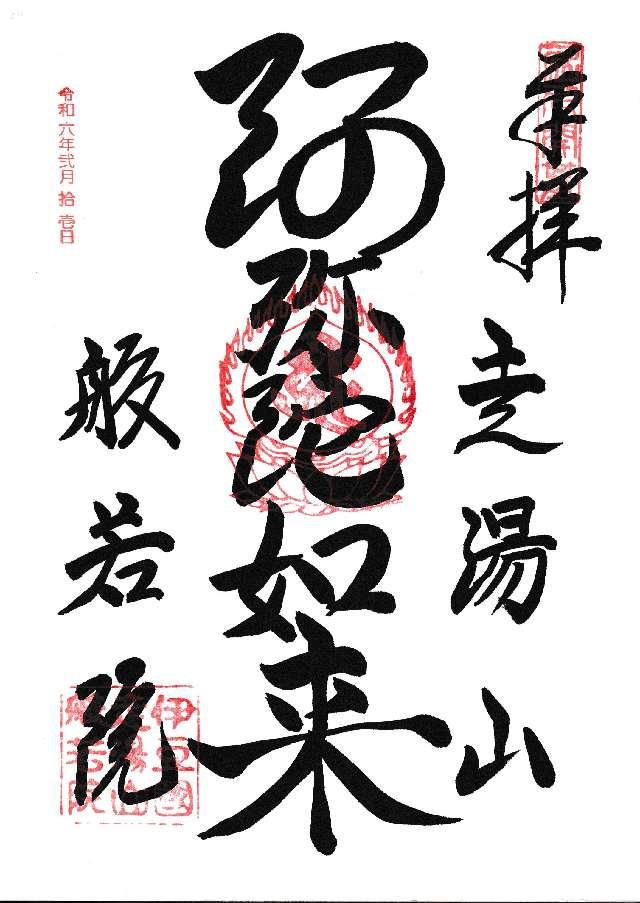 奉拝
走湯山
阿弥陀如来
般若院
令和六年弐月拾壱日
伊豆國
走湯山
般若院